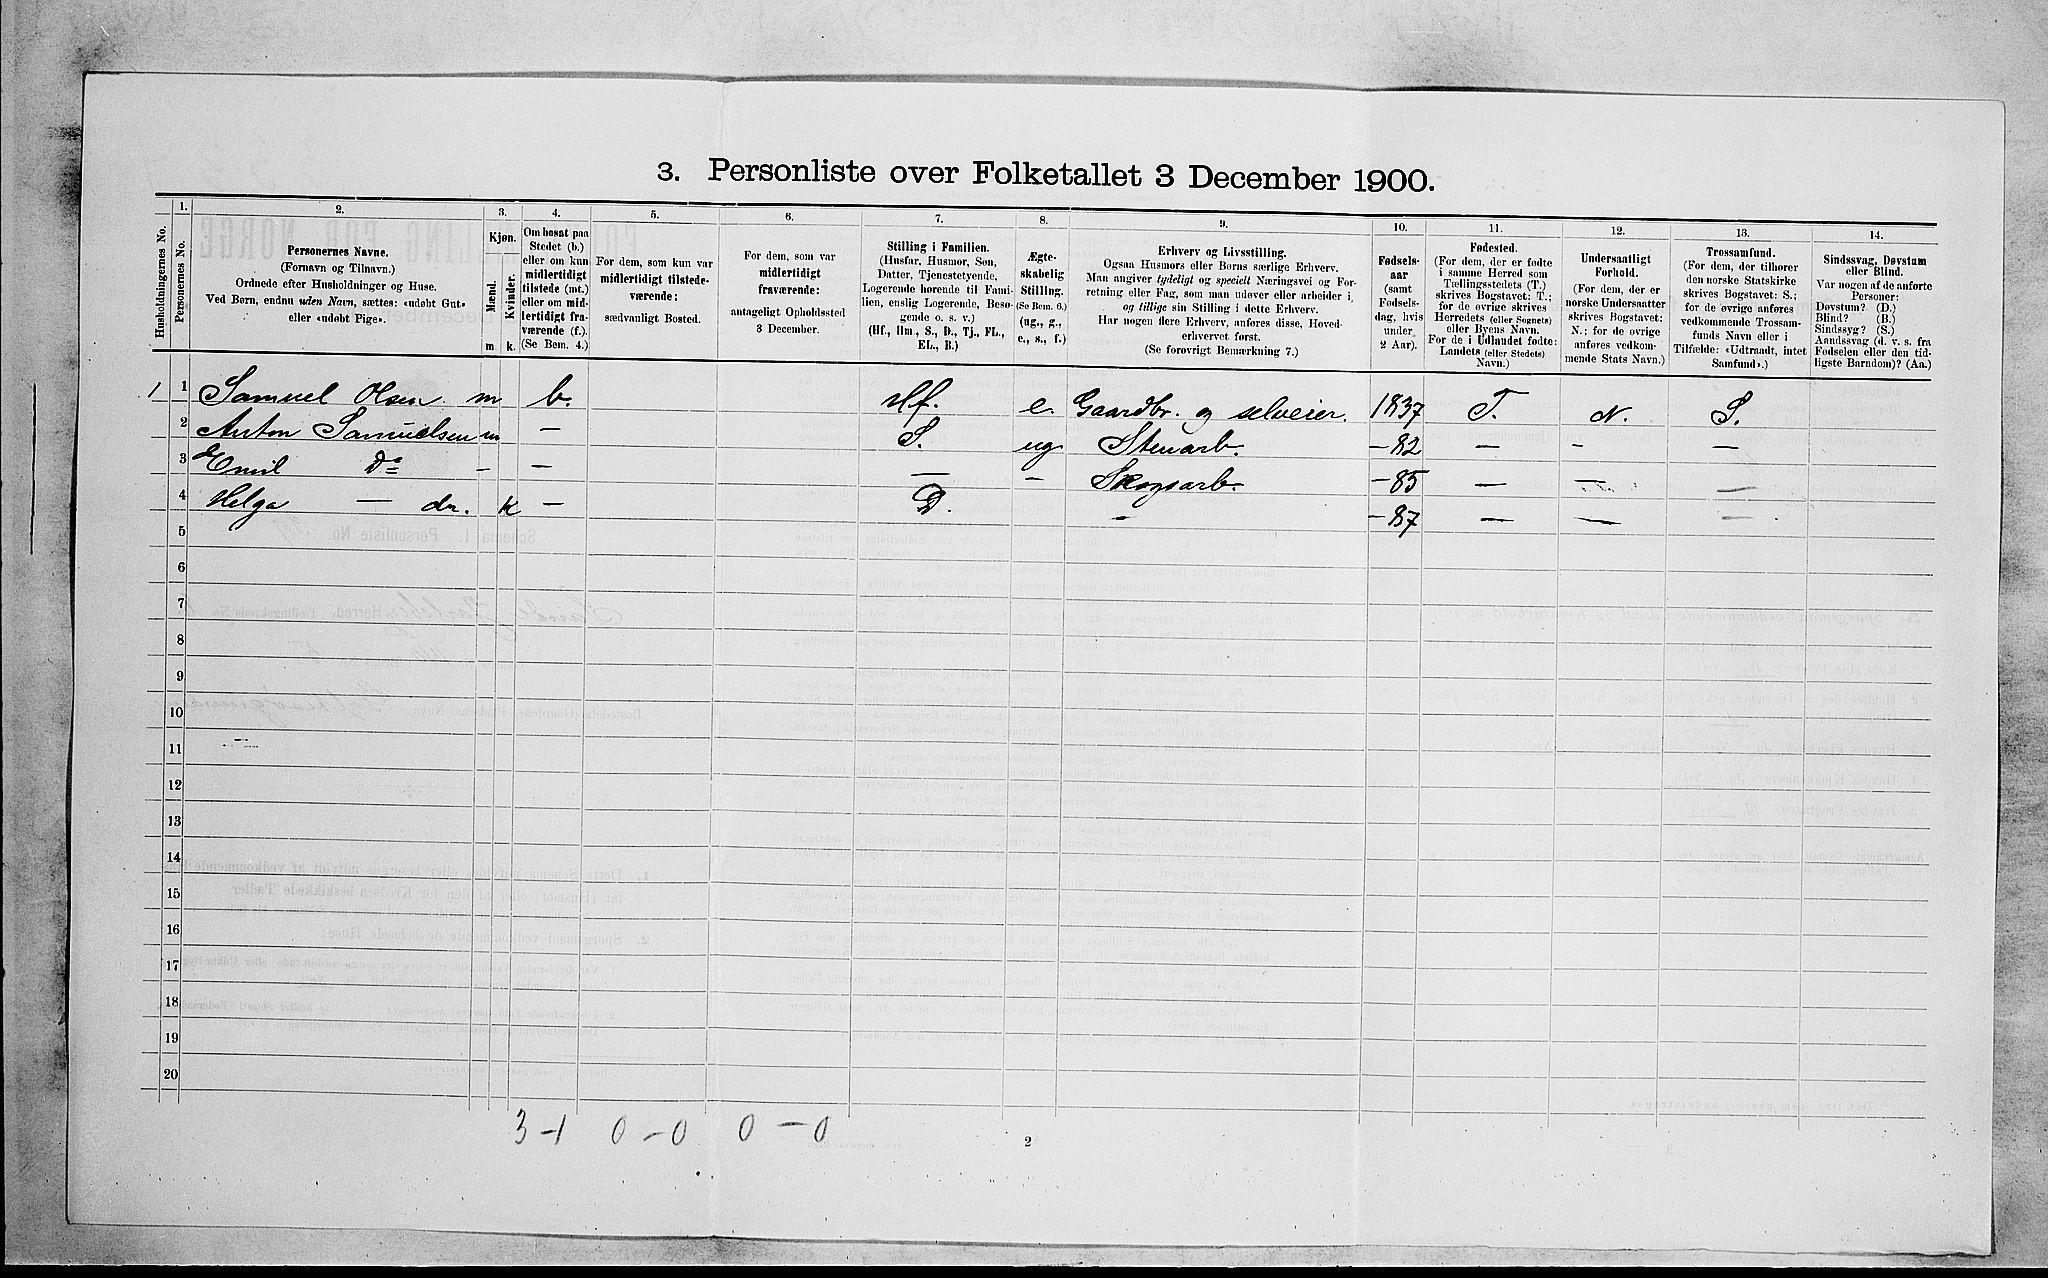 3. Personliste over Folketallet 3 December 1900.
1. 2. 3. 4. 5. 6. 7. 8. 9. 10. 11. 12. 13. 14.
Husholdningernes No.
Personernes No.
Personernes Navne.
(Fornavn og Tilnavn.)
Ordnede efter Husholdninger og Huse.
Ved Børn, endnu uden Navn, sættes: «udøbt Gut»
eller «udøbt Pige».
Kjøn.
Mænd.
Kvinder.
m. k.
Om bosat paa
Stedet (b.)
eller om kun
midlertidigt
tilstede (mt.)
eller om mid-
lertidigt fra-
værende (f.).
(Se Bem. 4.)
For dem, som kun var
midlertidigt tilstede-
værende:
sædvanligt Bosted.
For dem, som var
midlertidigt
fraværende:
antageligt Opholdssted
3 December.
Stilling i Familien.
(Husfar, Husmor, Søn,
Datter, Tjenestetyende,
Logerende hørende til Fami-
lien, enslig Logerende, Besø-
gende o. s. v.)
(Hf., Hm., S., D., Tj., FL.,
EL., B.)
Ægte-
skabelig
Stilling.
(Se Bem. 6.)
(ug., g.,
e., s., f.)
Erhverv og Livsstilling.
Ogsaa Husmors eller Børns særlige Erhverv.
Man angiver tydeligt og specielt Næringsvei og For-
retning eller Fag, som man udøver eller arbeider i,
og tillige sin Stilling i dette Erhverv.
Har nogen flere Erhverv, anføres disse, Hoved-
erhvervet først.
(Se forøvrigt Bemærkning 7.)
Fødsels-
aar
(samt
Fødsels-
dag, hvis
under
2 Aar).
Fødested.
(For dem, der er fødte
i samme Herred som
Tællingsstedets (T.)
skrives Bogstavet: T.;
for de øvrige skrives
Herredets (eller Sognets)
eller Byens Navn.
For de i Udlandet fødte:
Landets (eller Stedets)
Navn.)
Undersaatligt
Forhold.
(For dem, der er
norske Undersaatter
skrives Bogstavet:
N.; for de øvrige
anføres vedkom-
mende Stats Navn.)
Trossamfund.
(For dem, der tilhører
den norske Statskirke
skrives Bogstavet: S.;
for de øvrige anføres
vedkommende Trossam-
funds Navn eller i
Tilfælde: «Udtraadt, intet
Samfund».)
Sindssvag, Døvstum
eller Blind.
Var nogen af de anførte
Personer:
Døvstum? (D.)
Blind? (B.)
Sindssyg? (S.)
Aandssvag (d. v. s. fra
Fødselen eller den tid-
ligste Barndom)? (Aa.)
1 1 Samuel Olsen m b. Hf. e. Gaardbr. og selveier. 1837 T. N. S.
2 Anton Samuelsen m — S. ug Stenarb. — 82 — - —
3 Emil Do - — — - Skogsarb. — 85 — — —
4 Helga — dr. k — D. - — 87 — — —
5
6
7
8
9
10
11
12
13
14
15
16
17
18
19
20
3 – 1 0 – 0 0 – 0
2